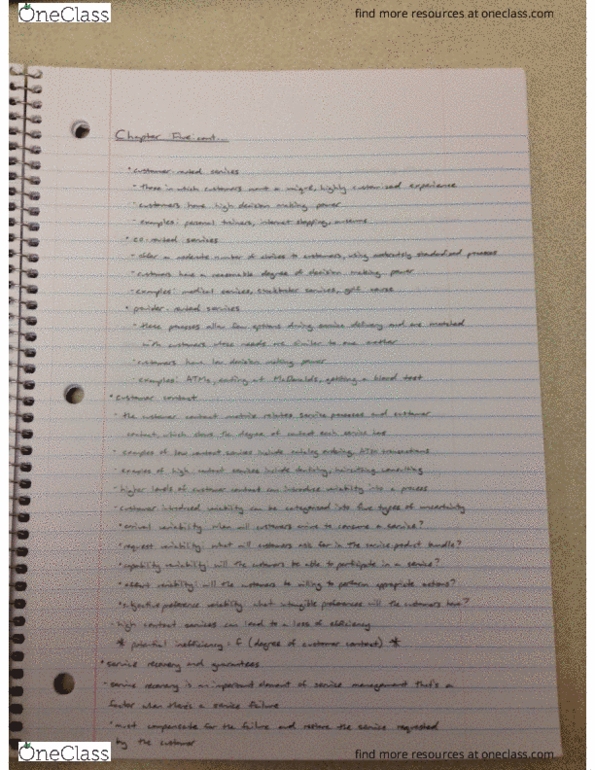 OneClass
find more resources at oneclass.com
Chapter Five cont...
• customer-routed services
• Those in which customers want a unique, highly customized experience
- customers have high decision making power
- examples: personal trainers, internet shopping, museums
• co-routed services
• offer a moderate number of choices to customers, using moderately standardized processes
- customers have a reasonable degree of decision making power
- examples: medical services, stockbroker services, golf course
• provider-routed services
• these processes allow few options during service delivery and are matched
with customers whose needs are similar to one another
- customers have low decision making power
- examples: ATMs, eating at McDonalds, getting a blood test
• customer contact
- the customer contact matrix relates service processes and customer
contact, which shows the degree of contact each service has
- examples of low contact services include catalog ordering, ATM transactions
- examples of high contact services include haircutting, consulting
- higher levels of customer contact can introduce variability into a process
- customer introduced variability can be categorized into five types of uncertainty
• arrival variability: when will customers arrive to consume a service?
• request variability: what will customers ask for in the service product bundle?
• capability variability: will the customers be able to participate in a service?
• effort variability: will the customers be willing to perform appropriate actions?
• subjective preference variability: what intangible preferences will the customers have?
- high contact services can lead to a loss of efficiency
* potential inefficiency = f (degree of customer contact) *
• service recovery and guarantees
- service recovery is an important element of service management that's a
factor when there's a service failure
• must compensate for the failure and restore the service requested
by the customer
OneClass
find more resources at oneclass.com